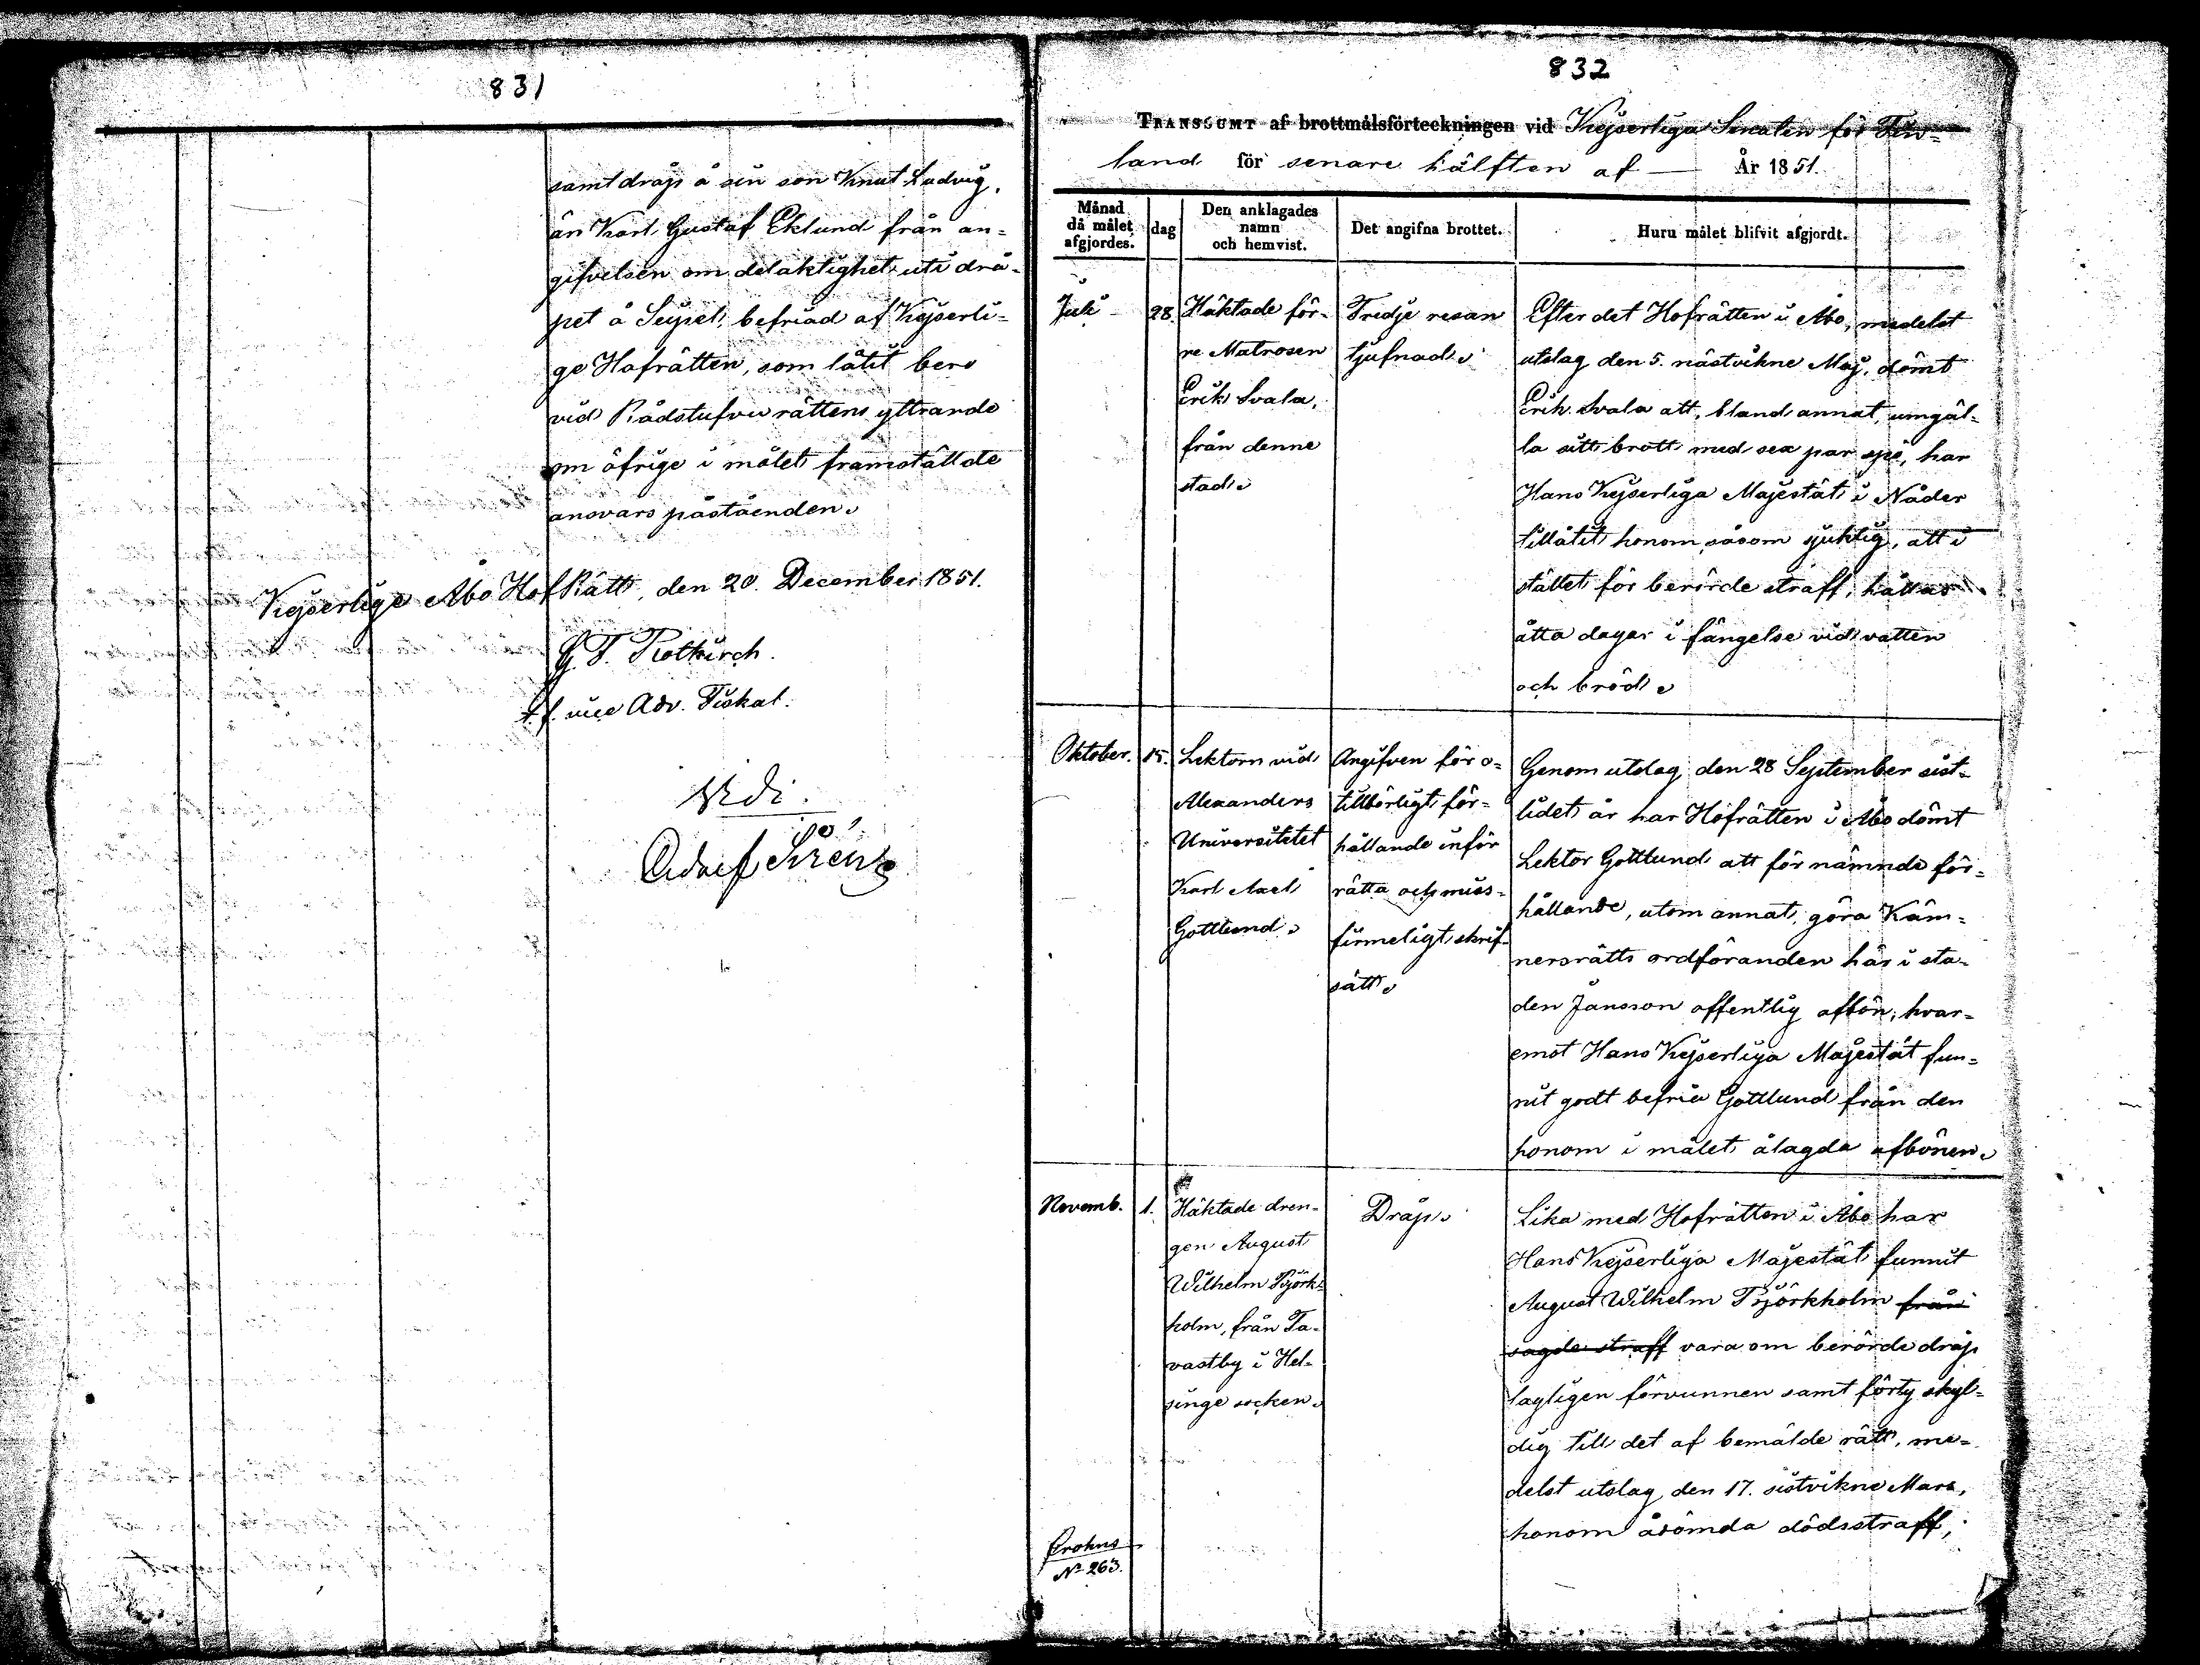 831
samt dråp å sin son Knut Ludvig,
är Karl Gustaf Eklund från an-
gifvelsen om delaktighet uti drå-
pet å Seipel, befriad af Kejserli-
ge Hofrätten, som låtit bero
vid Rådstufvurättens yttrande
om öfrige i målet framstälde
ansvars påståenden.
Kejserlige Åbo HofRätt, den 20. December 1851.
G. F. Rotkirch.
t. f. vice Adv. Fiskal.
Vidi.
Adolf Sirén
832
TRANSSUMT af brottmålsförteckningen vid Kejserliga Senaten för Fin-
land för senare hälften af — År 1851.
Månad då målet afgjordes.
dag
Den anklagades namn och hemvist.
Det angifna brottet.
Huru målet blifvit afgjordt.
Juli
28.
Häktade för-
re Matrosen
Erik Svala,
från denne
stad.
Tredje resan
tjufnad.
Efter det Hofrätten i Åbo, medelst
utslag den 5. nästvikne Maj, dömt
Erik Svala att, bland annat, umgäl-
la sitt brott med sex par spö, har
Hans Kejserliga Majestät i Nåder
tillåtit honom såsom sjuklig, att i
stället för berörde straff, hållas
åtta dagar i fängelse vid vatten
och bröd.
Oktober.
15.
Lektorn vid
Alexanders
Universitetet
Karl Axel
Gottlund.
Angifven för o-
tillbörligt för-
hållande inför
rätta och miss-
firmeligt skrif-
sätt.
Genom utslag den 28 September sist-
lidet år har Hofrätten i Åbo dömt
Lektor Gottlund att för nämnde för-
hållande, utom annat, göra Käm-
nersrätts ordföranden här i sta-
den Jansson offentlig afbön; hvar-
emot Hans Kejserliga Majestät fun-
nit godt befria Gottlund från den
honom i målet ålagda afbönen.
Novemb.
1.
Häktade dren-
gen August
Wilhelm Björk-
holm, från Ta-
vastby i Hel-
singe socken.
Dråp.
Lika med Hofrätten i Åbo har
Hans Kejserliga Majestät funnit
August Wilhelm Björkholm från
sagde straff vara om berörde dråp
lagligen förvunnen samt förty skyl-
dig till det af bemälde rätt, me-
delst utslag den 17. sistvikne Mars,
honom ådömda dödsstraff;
Crohns
No 263.